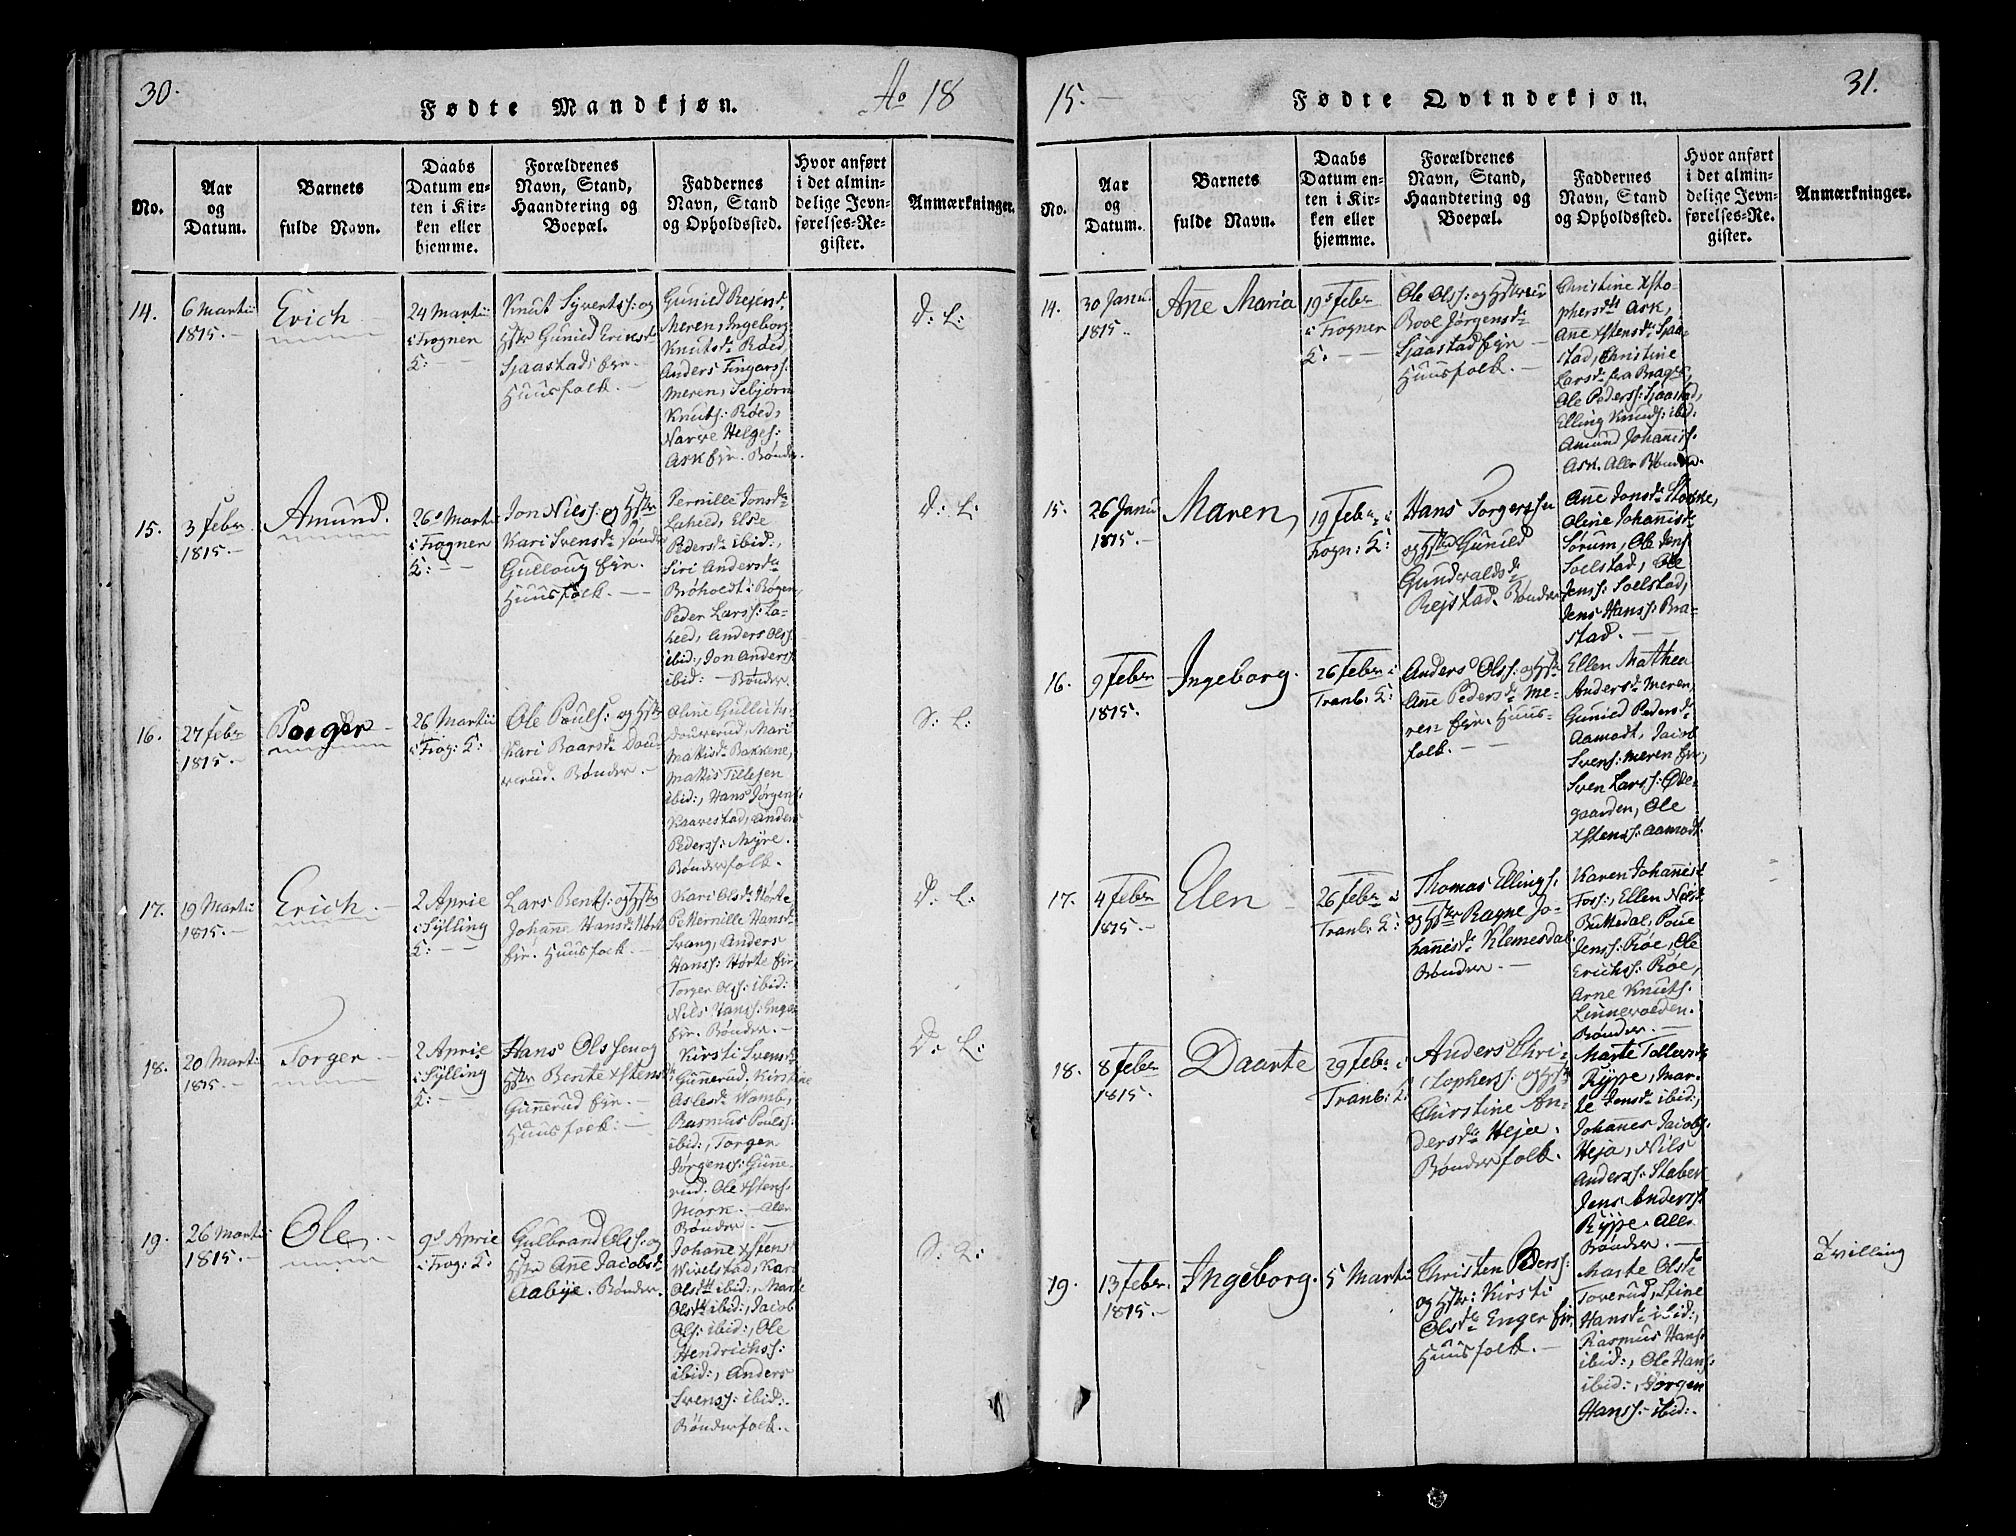 30.
Fødte Mandkjøn.
Ao 18
No.
Aar
og
Datum.
Barnets
fulde Navn.
Daabs
Datum en-
ten i Kir-
ken eller
hjemme.
Forældrenes
Navn, Stand,
Haandtering og
Boepæl.
Faddernes
Navn, Stand
og Opholdssted.
Hvor anført
i det almin-
delige Jevn-
førelses-Re-
gister.
Anmærkninger.
14.
6 Martii
1815.
Erich
24 Martii
i Frogner
K:
Knut Syverts: og
Hstr Gunild Erics d
Sjaastad ejr.
Huusfolk.
Gunild Rejers d
Meren, Ingeborg
Knuts d. Røed,
Anders Fingars s:
Meren, Sebjørn
Knuts: Røed,
Narve Helges:
Ask ejr. Bønder.
D: L:
15.
3 Febr.
1815.
Amund.
26 Marti
i Frogner
K:
Jon Niels s: og Hstr
Kari Svens d. Søndr
Gulloug ejr.
Huusfolk.
Pernille Jons d
Laheld, Else
Peders d. ibid:,
Siri Anders d
Brøholdt i Røgen,
Peder Lars s: La-
heed, Anders Ols s:
ibid:, Jon Anders s:
ibid: Bønder.
D: L:
16.
27 Febr
1815.
Torger
26 Martii
i Frog: K:
Ole Pouls: og Hstr
Kari Baars d. Dau-
verud. Bønder.
Oline Gullichs d
Douverud, Mari
Mattis d. Bakkene,
Mattis Tillejen
ibid:, Hans Jørgens:
Kaarestad, Anders
Peders s: Myre.
Bønderfolk.
S: L:
17.
19 Martii
1815.
Erich
2 Aprie
i Sylling
K:
Lars Bents: og Hstr
Johanne Hans d. Hørte
ejr. Huusfolk.
Kari Ols d. Hørte
Petternille Hans d.
Svang, Anders
Hans s: Hørte ejr,
Torger Ols s: ibid:
Nils Hans s: Enger
ejr. Bønder.
D: L:
18.
20 Marti
1815.
Torger
2 Aprie
i Sylling
K:
Hans Olssen og
Hstr Bente Xstens d
Gunnerud ejr.
Huusfolk:
Kirsti Svens d
Gunnerud, Kirstine
Asles d. Wamb,
Rasmus Pouls s:
ibid:, Torger
Jørgens s: Gunne-
rud. Ole Xstens s.
Mork. Alle
Bønder.
D: L:
19.
26 Marti
1815.
Ole
9 Aprie
i Frog: K:
Gulbrand Ols s: og
Hstr Anne Jacobs d.
Aabye. Bønder.
Johanne Xstens d
Wivelstad, Kari
Ols d. ibid:, Marte
Ols d. ibid:, Jacob
Ols: ibid:, Ole
Hendrichs s:
ibid:, Anders
Svens s: ibid:
Bønderfolk.
S: L:
15.
Fødte Qvindekjøn.
31.
No.
Aar
og
Datum.
Barnets
fulde Navn.
Daabs
Datum en-
ten i Kir-
ken eller
hjemme.
Forældrenes
Navn, Stand,
Haandtering og
Boepæl.
Faddernes
Navn, Stand
og Opholdssted.
Hvor anført
i det almin-
delige Jevn-
førelses-Re-
gister.
Anmærkninger.
14.
30 Janu.
1815.
Ane Maria
19 Febr
i Frogner
K:
Ole Ols s: og Hstrue
Boel Jørgens d
Sjaastad Ejr
Huusfolk.
Christine Xsto
phers d. Ask,
Ane Xstens d. Sjaa-
stad, Christine
Lars d. fra Brager,
Ole Peders s: Sjaastad,
Elling Knuds: ibid:
Amund Johannis s.
Ask. Alle Bønder.
15.
26 Janu
1815.
Maren,
19 Febr. i
Frogn: K:
Hans Torgerssen
og Hstr Gunild
Gundvalds d
Rejstad. Bønder
Ane Jons d. Stokke,
Oline Johannis d.
Sørum, Ole Jens
Soelstad, Ole
Jens s: Soelstad,
Jens Hans s: Bra-
stad.
16.
9 Febr
1815.
Ingeborg.
26 Febr i
Tranb: K:
Anders Ols s: og Hstr
Anne Peders d. Me-
ren ejr. Huus-
folk.
Ellen Mathea
Anders d. Meren,
Gunild Peders d.
Aamodt, Jacob
Svens: Meren ejr,
Sven Lars s: Øde-
gaarden, Ole
Xstens s: Aamodt.
17.
4 Febr
1815.
Elen
26 Febr i
Tranb: K:
Thomas Ellings s.
og Hstr Ragne Jo-
hannis d. Klemesdal
Bønder.
Karen Johannis d.
Foss, Ellen Niels d
Buttedal, Poul
Jens s: Røe, Ole
Erichs s: Røe,
Arne Knuts s.
Linnevolden.
Bønder.
18.
8 Febr
1815.
Daarte
29 Febr i
Tranb: K:
Anders Chri-
stophers s: og Hstr
Christine An-
ders d. Hejee.
Bønderfolk.
Marte Tollevs d.
Rype, Mar-
te Jens d. ibid:,
Johannes Jacobs s.
Heja, Nils
Anders s: Staber
Jens Anders s:
Rype. Alle
Bønder.
19.
13 Febr.
1815.
Ingeborg.
5 Martii
Christen Peders s:
og Hstr: Kirsti
Ols d. Enger ejr.
Huusfolk.
Marte Ols d.
Toverud, Stine
Hans d. ibid:,
Rasmus Hans:
ibid:, Ole Hans:
ibid:, Jørgen
Hans s: ibid:
Tvilling